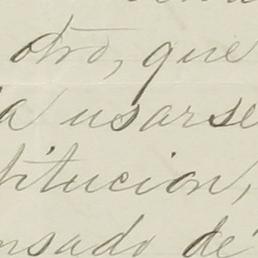 otro, que
a usarse
titucion,
nsado de